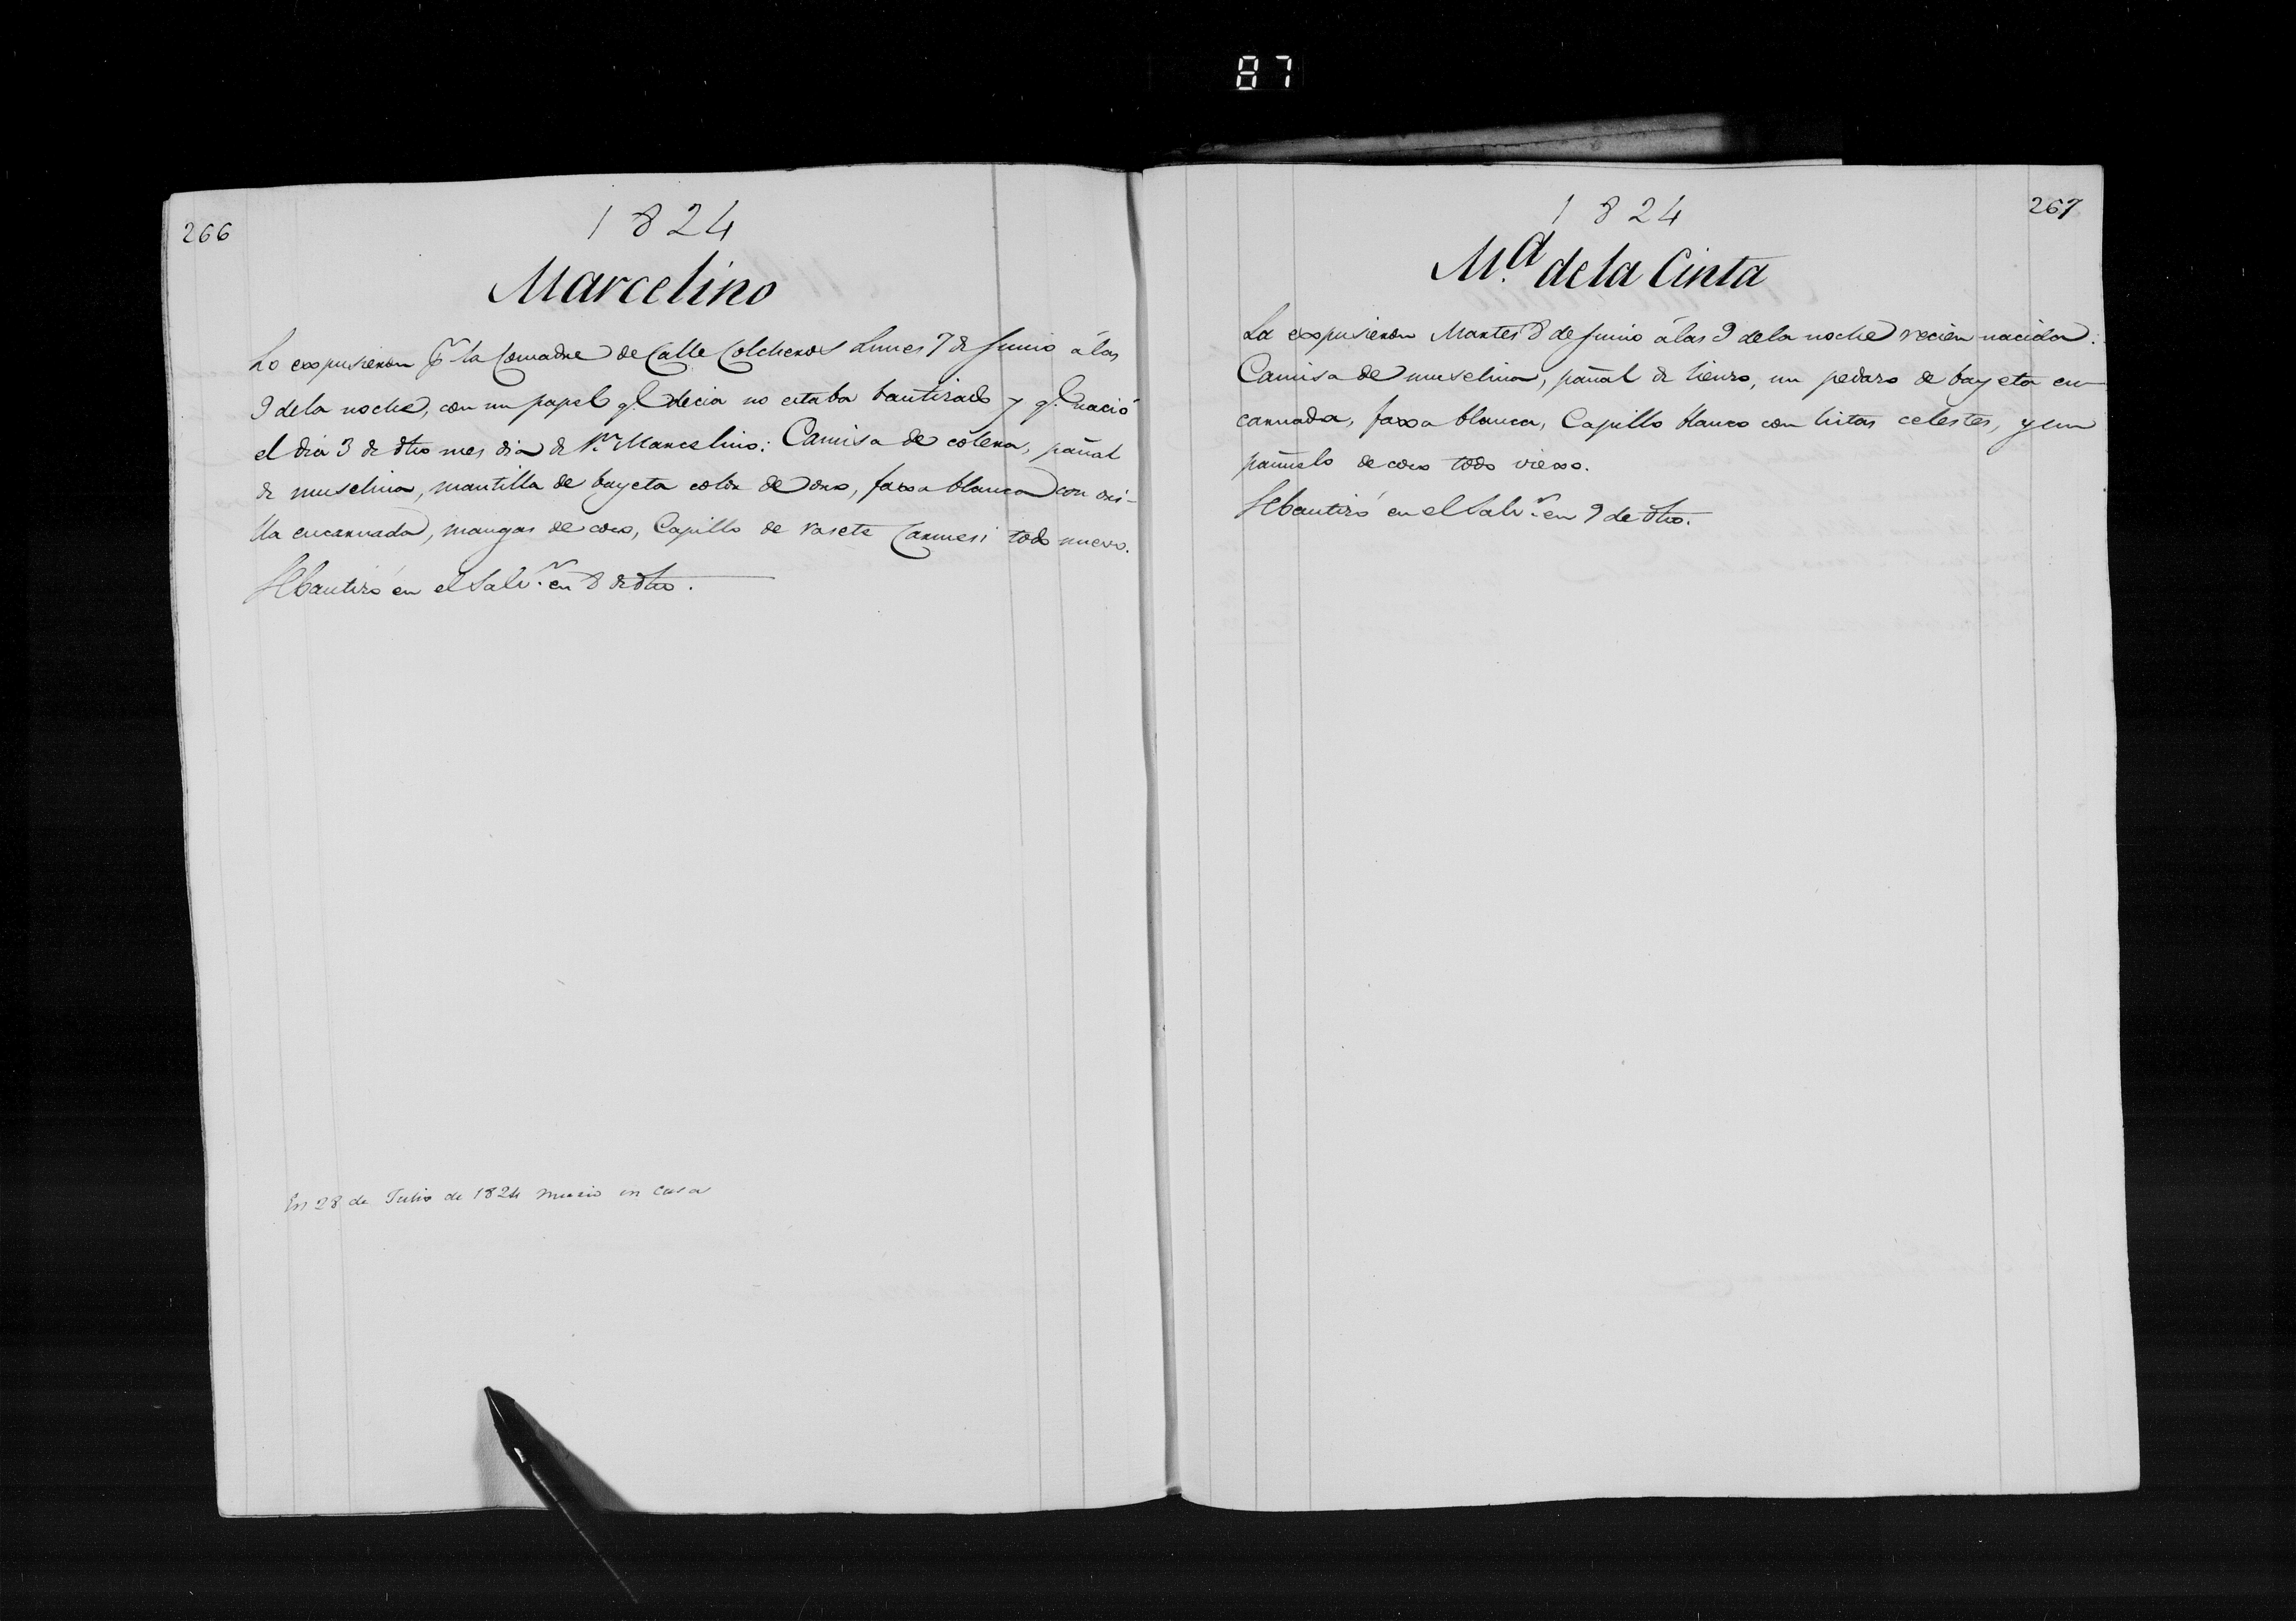 87
266
1824
Marcelino
Lo expusieron pr. la Comadre de Calle Colcheros Lunes 7 de Junio á las
9 de la noche, con un papel q.e decia no estaba bautizado y q.e nació
el dia 3 de dho mes dia de Sn. Marcelino: Camisa de cotena, pañal
de muselina, mantilla de bayeta color de oro, faxa blanca con ori-
lla encarnada, mangas de coco, Capillo de rasete Carmesi todo nuevo.
Se bautizó en el Salv.r en 8 de dho.
En 28 de Julio de 1824 murio en casa
1824
267
M.a de la Cinta
La expusieron Martes 8 de Junio á las 9 de la noche recien nacida:
Camisa de muselina, pañal de lienzo, un pedazo de bayeta en-
carnada, faxa blanca, Capillo blanco con listas celestes, y un
pañuelo de coco todo viexo.
Se bautizó en el Salv.r en 9 de dho.